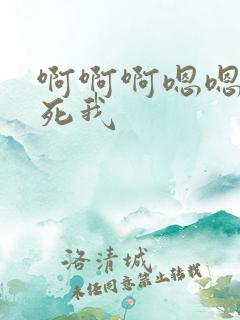 啊啊啊嗯嗯
死我
洛清城
未经同意禁止转载